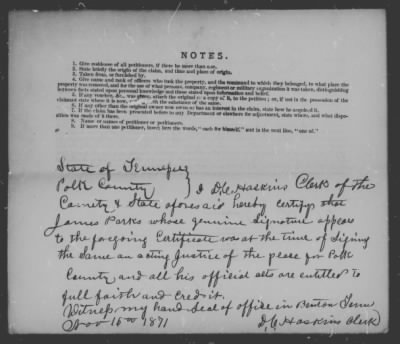 NOTES.
1. Give residence of all petitioners, if there be more than one.
2. State briefly the origin of the claim, and time and place of origin.
3. Taken from, or furnished by.
4. Give name and rank of officers who took the property, and the command to which they belonged, to what place the
property was removed, and for the use of what persons, company, regiment or military organization it was taken, distinguishing
between facts stated upon personal knowledge and those stated upon information and belief.
5. If any voucher, &c. was given, attach the original or a copy of it, to the petition; or, if not in the possession of the
claimant state where it is now, with the substance of the same.
6. If any other than the original owner now owns or has an interest in the claim, state how he acquired it.
7. If the claim has been presented before to any Department or elsewhere for adjustment, state where, and what dispo-
sition was made of it there.
8. Name or names of petitioner or petitioners.
9. If more than one petitioner, insert here the words, "each for himself," and in the next line, "one of."
State of Tennessee
Polk County } I D,C, Haskins Clerk of the
County & State aforesaid hereby certify that
James Parks whose genuine Signature appears
to the foregoing Certificate was at the time of Signing
the Same an acting Justice of the peace for Polk
County and all his official acts are entitled to
full faith and credit.
Witness my hand & Seal of office in Benton Tenn
Nov 15th 1871 D,C, Haskins Clerk